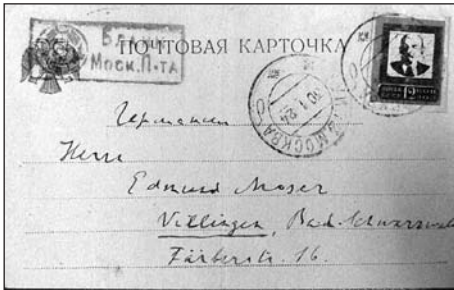 Бланк
Моск. П-та
ПОЧТОВАЯ КАРТОЧКА
МОСКВА
12
Германия
Herrn
Edmund Moser
Villingen, Bad. Schwarzwald
Färberstr. 16.